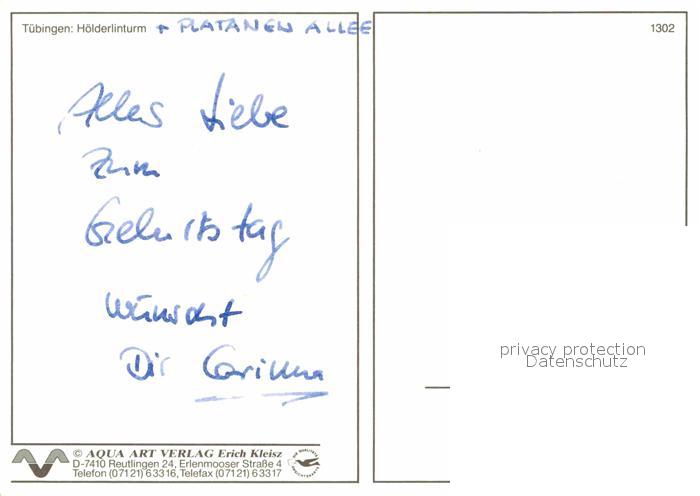 Tübingen: Hölderlinturm + PLATANEN ALLEE
1302
Alles Liebe
zum
Geburtstag
wünscht
Dir Corinna
privacy protection
Datenschutz
© AQUA ART VERLAG Erich Kleisz
D-7410 Reutlingen 24, Erlenmooser Straße 4
Telefon (07121) 63316, Telefax (07121) 63317